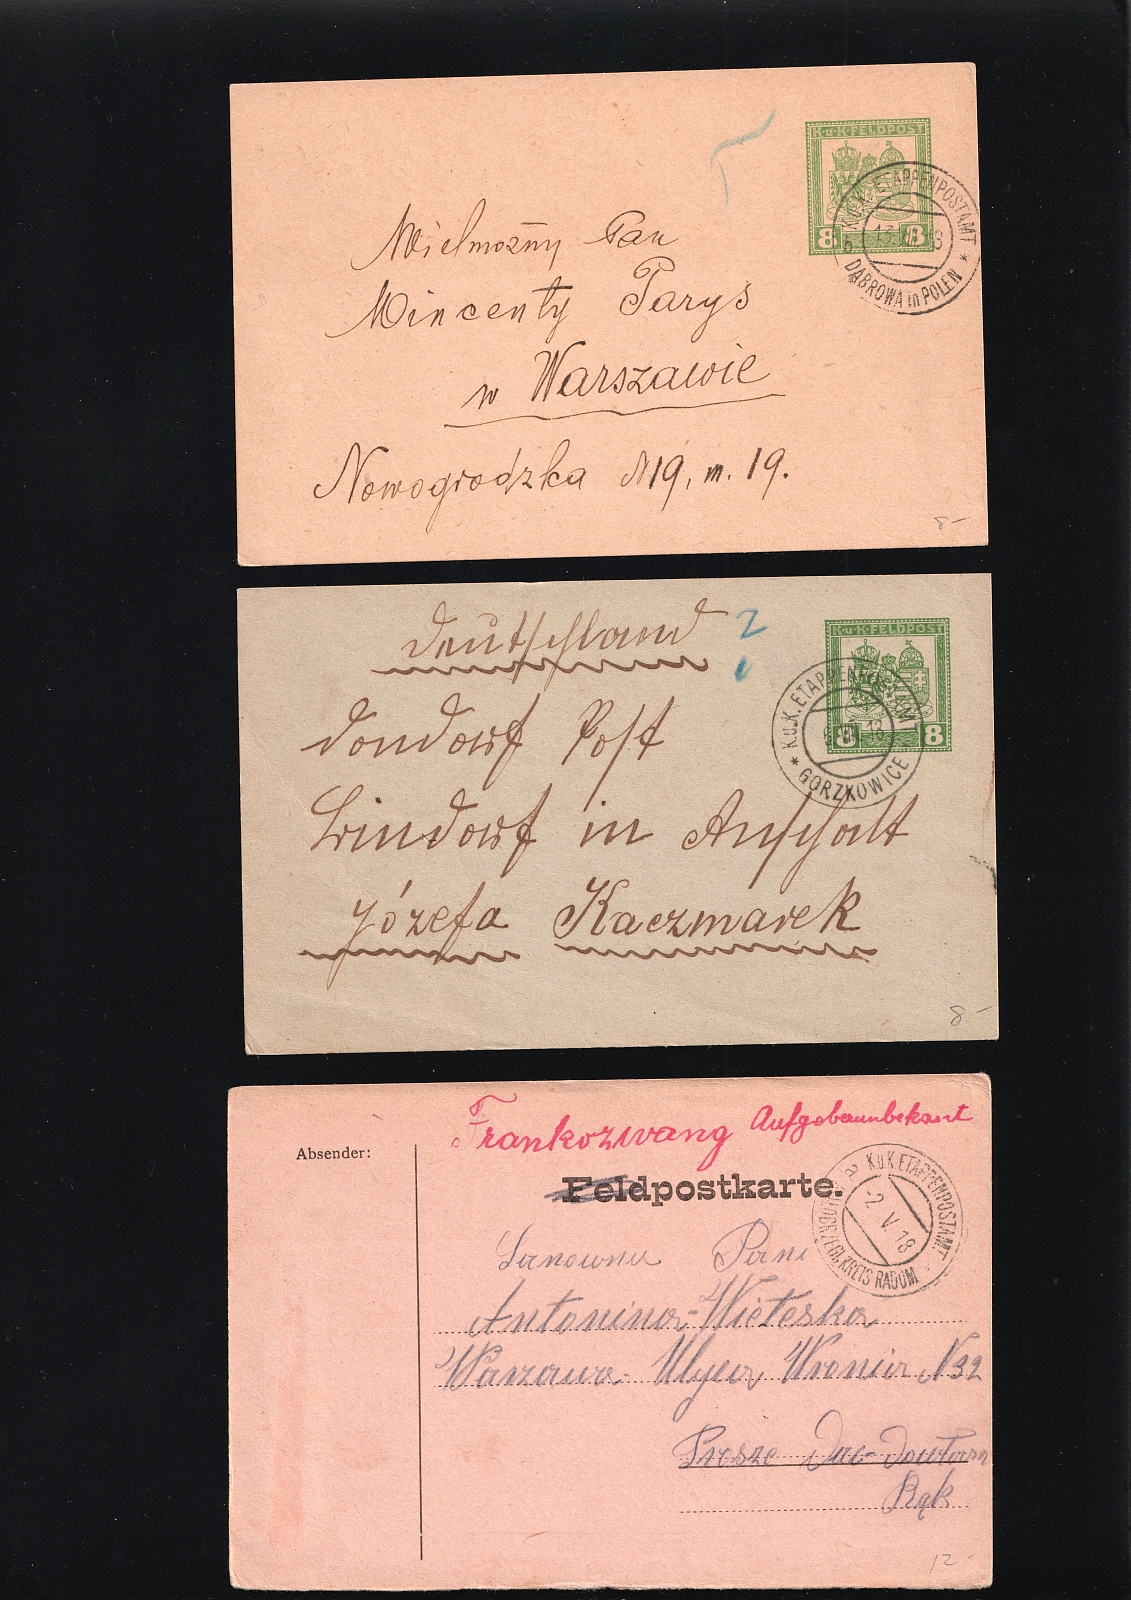 K.u.K. FELDPOST
8 8
K.u.K. ETAPPENPOSTAMT
DĄBROWA in POLEN
Wielmożny Pan
Wincenty Parys
w Warszawie
Nowogrodzka N19, m. 19.
8-
Deutschland
2
K.u.K. FELDPOST
8 8
K.u.K. ETAPPENPOSTAMT
GORZKOWICE
Dondorf Post
Lindorf in Anhalt
Józefa Kaczmarek
8-
Frankozwang Aufgabeunbekant
Absender:
K.u.K. ETAPPENPOSTAMT
-2 V. 18
KREIS RADOM
Feldpostkarte.
Pani
Antonina Wieteska
Warzawa- Ulyca Wronia N32
Prosze Dac
Rąk
12-